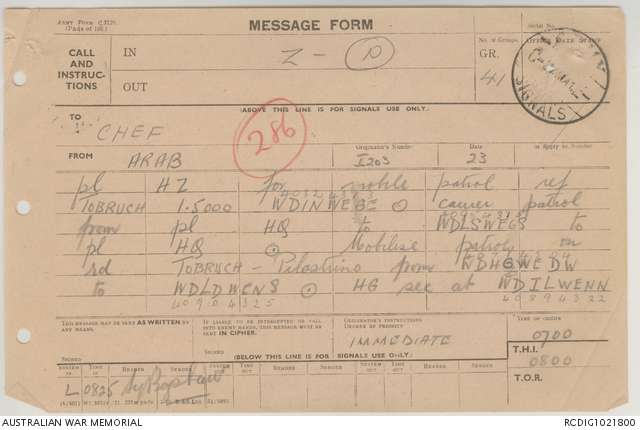 ARMY FORM C.2128.
(Pads of 100.)
MESSAGE FORM
Serial No.
CALL
AND
INSTRUC-
TIONS
IN
Z - D
No. of Groups.
GR.
41
OFFICE DATE STAMP
OUT
SIGNALS
(ABOVE THIS LINE IS FOR SIGNALS USE ONLY.)
TO
CHEF
286
FROM
ARAB
Originator's Number
I203
Date
23
In Reply to Number
pl HZ for mobile patrol ref
4032
TOBRUCH 1.5000 WDINWEBE ⊙ carrier patrol
from pl HQ to WDLSWEGS to
pl HQ ⊙ Mobilise patrols on
rd TOBRUCH - Pilastrino from WDHGWEDW
to WDLDWENS ⊙ HG sec at WDILWENN
40904325 40894322
THIS MESSAGE MAY BE SENT AS WRITTEN BY
ANY MEANS.
SIGNED
IF LIABLE TO BE INTERCEPTED OR FALL
INTO ENEMY HANDS, THIS MESSAGE MUST BE
SENT IN CIPHER.
SIGNED
ORIGINATOR'S INSTRUCTIONS
DEGREE OF PRIORITY
IMMEDIATE
TIME OF ORIGIN
0700
T.H.I.
0800
T.O.R.
(BELOW THIS LINE IS FOR SIGNALS USE ONLY.)
SYSTEM IN
TIME IN
READER
SENDER
SYSTEM OUT
TIME OUT
READER
SENDER
SYSTEM OUT
TIME OUT
READER
SENDER
L 0825
AUSTRALIAN WAR MEMORIAL
RCDIG1021800